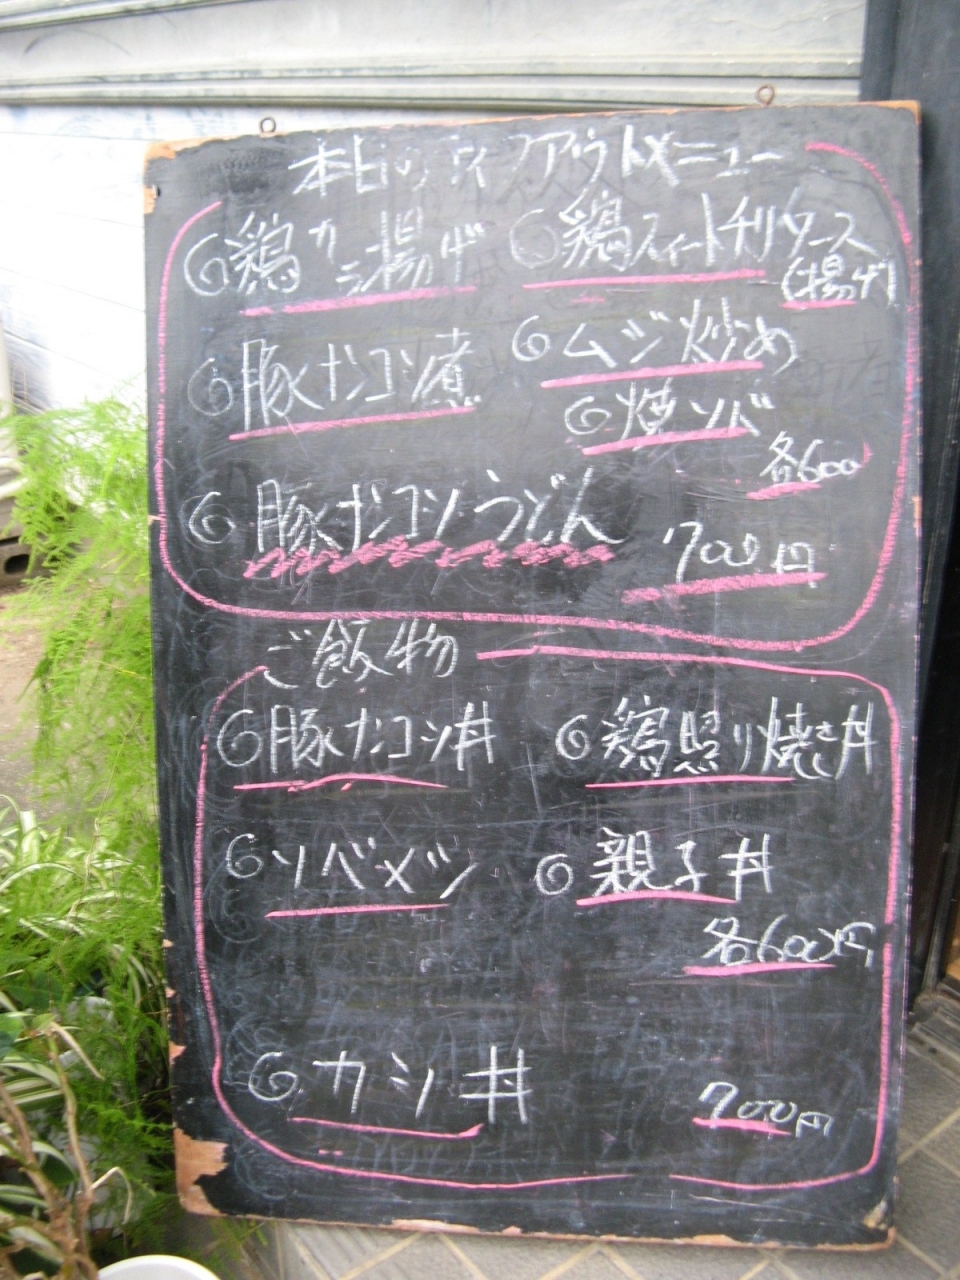 本日のテイクアウトメニュー
鶏カラ揚げ
鶏スイートチリソース
(揚げ)
豚ナンコツ煮
ムジ炒め
焼ソバ
各600
豚ナンコツうどん
700円
ご飯物
豚ナンコツ丼
鶏照り焼き丼
ソバメシ
親子丼
各600円
カツ丼
700円